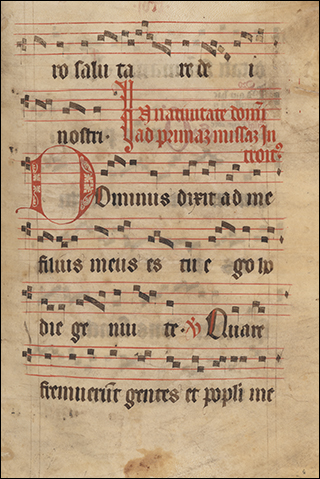 ro salu ta re de i
nostri. In natiuitate domī
ad primaʒ missaʒ In
troitꝰ
Dominus dixit ad me
filius meus es tu e go ho
die ge nui te. ℣ Quare
fremuerūt gentes et popli me